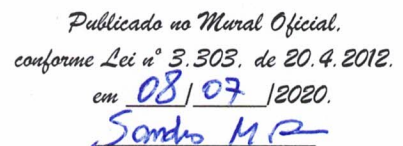 Publicado no Mural Oficial,
conforme Lei nº 3.303, de 20.4.2012.
em 08/07/2020.